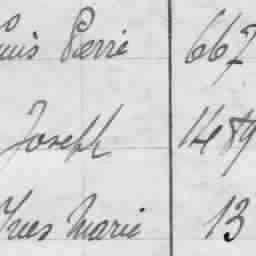 Pierre 667
Joseph 1489
Yves Marie 13